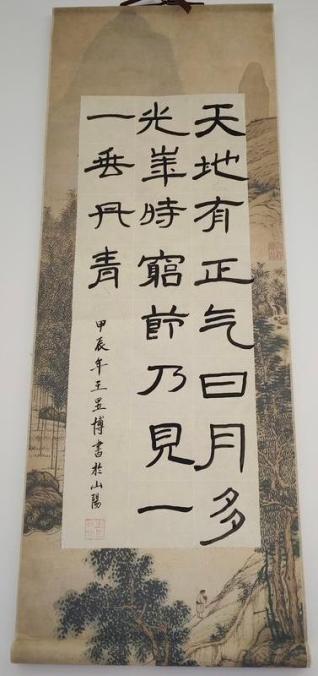 天地有正气日月多
光華時窮節乃見一
一垂丹青
甲辰年王昱博書於山陽